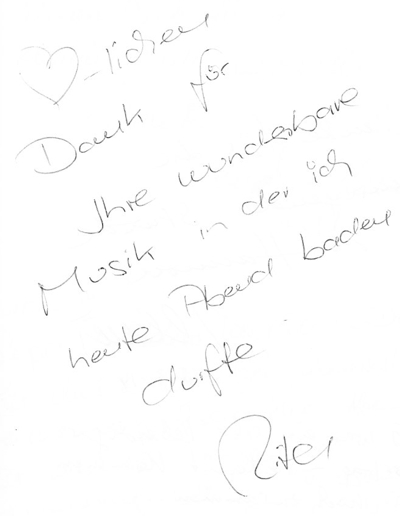 ♡-lichen
Dank für
Ihre wunderbare
Musik in der ich
heute Abend baden
durfte.
Rita